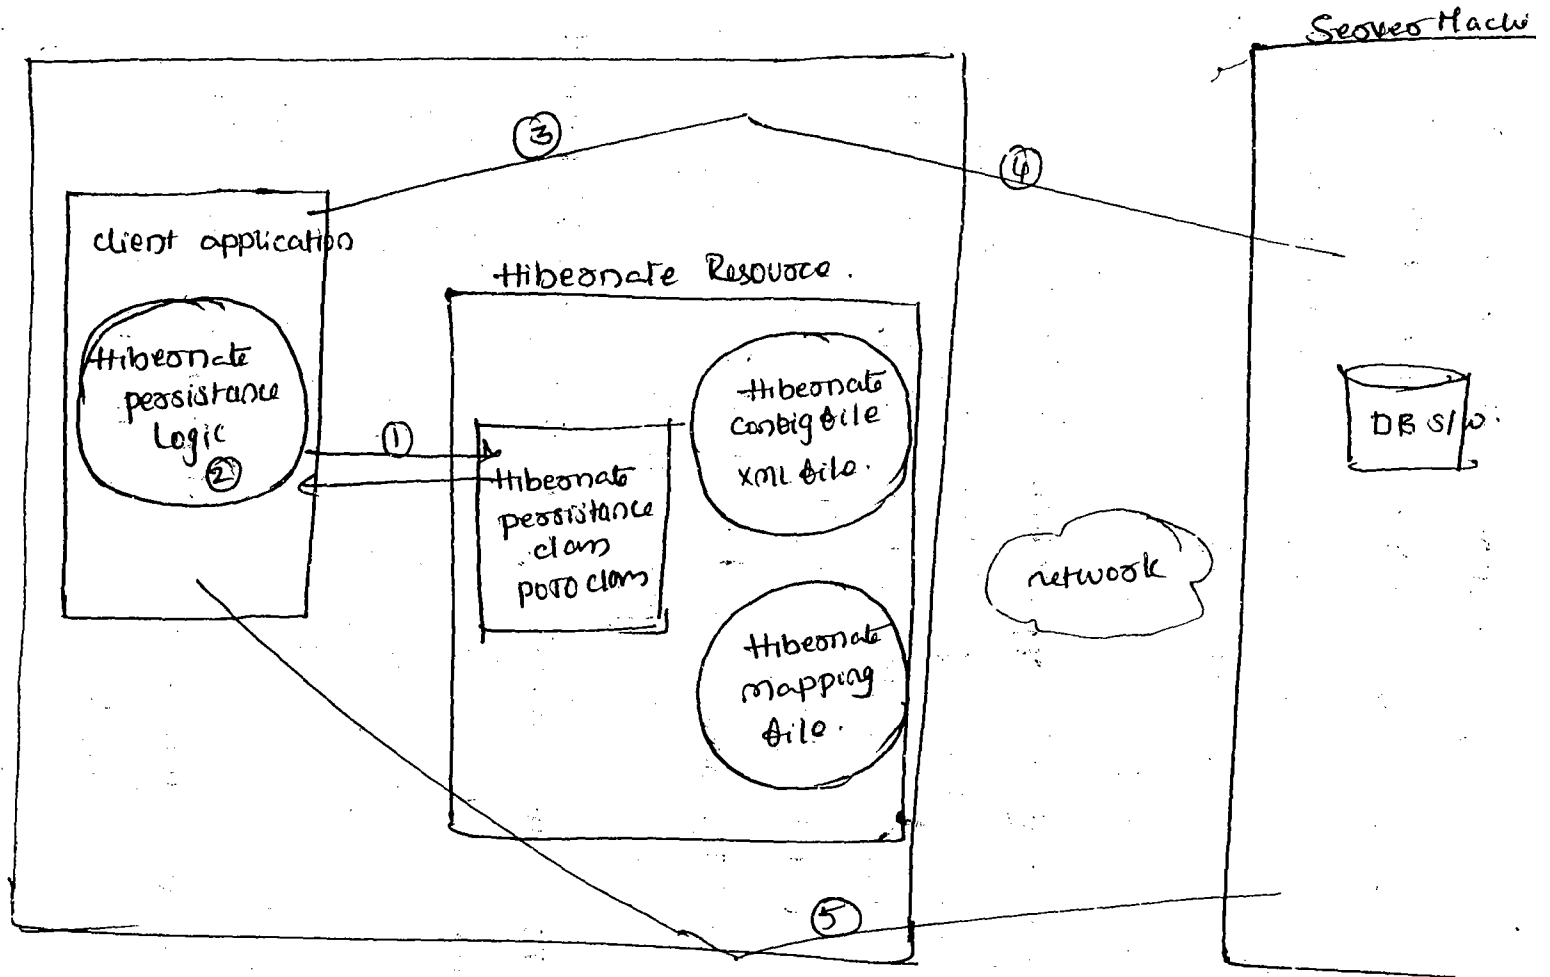 Server Machi
3
4
client application
Hibernate Resource.
Hibernate
persistance
Logic
2
1
Hibernate
persistance
class
POJO class
Hibernate
config file
XML file.
Hibernate
mapping
file.
DB S/W.
network
5